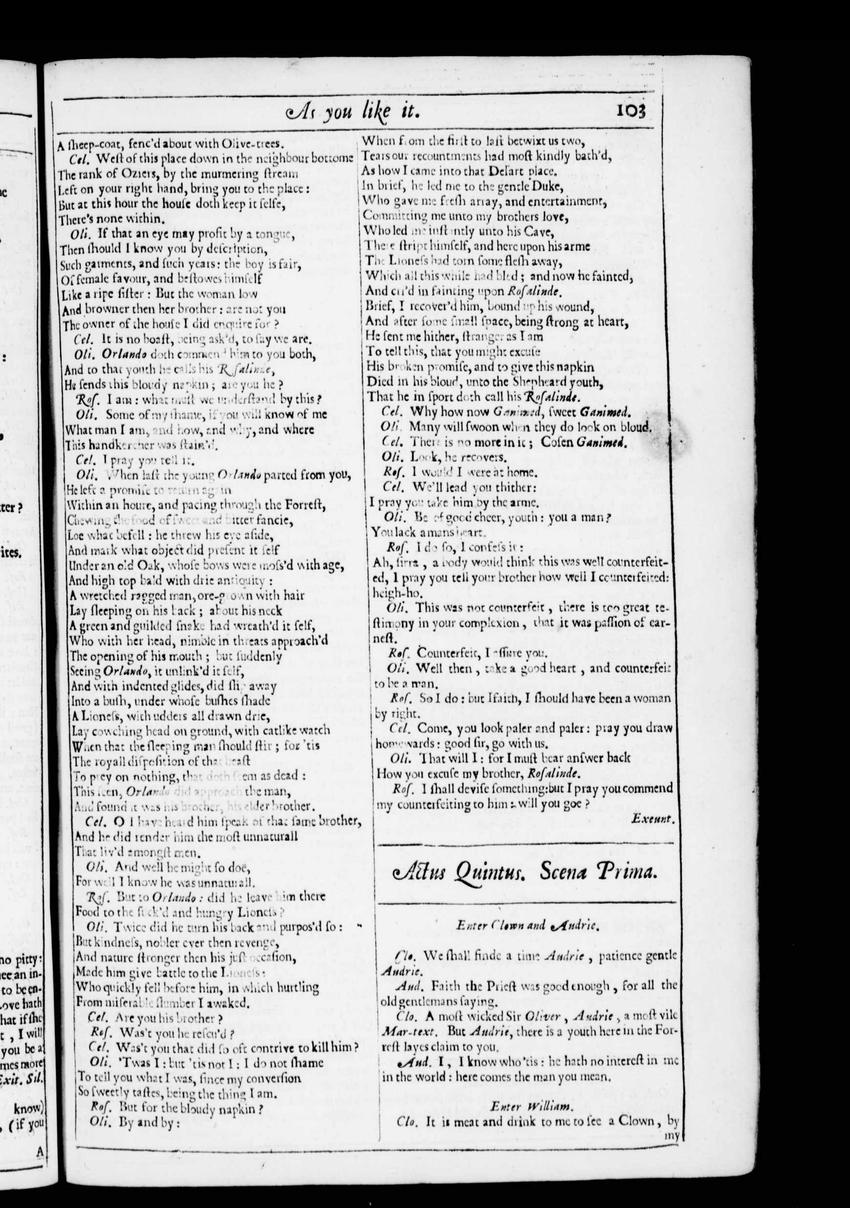 As you like it. 103
A ſheep-coat, fenc'd about with Olive-trees.
Cel. Weſt of this place down in the neighbour bottome
The rank of Oziers, by the murmering ſtream
Left on your right hand, bring you to the place:
But at this hour the houſe doth keep it ſelfe,
There's none within.
Oli. If that an eye may profit by a tongue,
Then ſhould I know you by deſcription,
Such garments, and ſuch years: the boy is fair,
Of female favour, and beſtowes himſelf
Like a ripe ſiſter: But the woman low
And browner then her brother: are not you
The owner of the houſe I did enquire for?
Cel. It is no boaſt, being ask'd, to ſay we are.
Oli. Orlando doth commend him to you both,
And to that youth he calls his Roſalinde,
He ſends this bloudy napkin; are you he?
Roſ. I am: what muſt we underſtand by this?
Oli. Some of my ſhame, if you will know of me
What man I am, and how, and why, and where
This handkercher was ſtain'd.
Cel. I pray you tell it.
Oli. When laſt the young Orlando parted from you,
He left a promiſe to return again
Within an houre, and pacing through the Forreſt,
Chewing the food of ſweet and bitter fancie,
Loe what befell: he threw his eye aſide,
And mark what object did preſent it ſelf
Under an old Oak, whoſe bows were moſs'd with age,
And high top bald with drie antiquity:
A wretched ragged man, ore-grown with hair
Lay ſleeping on his back; about his neck
A green and guilded ſnake had wreath'd it ſelf,
Who with her head, nimble in threats approach'd
The opening of his mouth; but ſuddenly
Seeing Orlando, it unlink'd it ſelf,
And with indented glides, did ſlip away
Into a buſh, under whoſe buſhes ſhade
A Lioneſs, with udders all drawn drie,
Lay cowching head on ground, with catlike watch
When that the ſleeping man ſhould ſtir; for 'tis
The royall diſpoſition of that beaſt
To prey on nothing, that doth ſeem as dead:
This ſeen, Orlando did approach the man,
And found it was his brother, his elder brother.
Cel. O I have heard him ſpeak of that ſame brother,
And he did render him the moſt unnaturall
That liv'd amongſt men.
Oli. And well he might ſo doe,
For well I know he was unnaturall.
Roſ. But to Orlando: did he leave him there
Food to the ſuck'd and hungry Lioneſs?
Oli. Twice did he turn his back and purpos'd ſo:
But kindneſs, nobler ever then revenge,
And nature ſtronger then his juſt occaſion,
Made him give battle to the Lioneſs:
Who quickly fell before him, in which hurtling
From miſerable ſlumber I awaked.
Cel. Are you his brother?
Roſ. Was't you he reſcu'd?
Cel. Was't you that did ſo oft contrive to kill him?
Oli. 'Twas I: but 'tis not I: I do not ſhame
To tell you what I was, ſince my converſion
So ſweetly taſtes, being the thing I am.
Roſ. But for the bloudy napkin?
Oli. By and by:
When from the firſt to laſt betwixt us two,
Tears our recountments had moſt kindly bath'd,
As how I came into that Deſart place.
In brief, he led me to the gentle Duke,
Who gave me freſh aray, and entertainment,
Committing me unto my brothers love,
Who led me inſtantly unto his Cave,
There ſtript himſelf, and here upon his arme
The Lioneſs had torn ſome fleſh away,
Which all this while had bled; and now he fainted,
And cri'd in fainting upon Roſalinde.
Brief, I recover'd him, bound up his wound,
And after ſome ſmall ſpace, being ſtrong at heart,
He ſent me hither, ſtranger as I am
To tell this, that you might excuſe
His broken promiſe, and to give this napkin
Died in his bloud, unto the Shepheard youth,
That he in ſport doth call his Roſalinde.
Cel. Why how now Ganimed, ſweet Ganimed.
Oli. Many will ſwoon when they do look on bloud.
Cel. There is no more in it; Coſen Ganimed.
Oli. Look, he recovers.
Roſ. I would I were at home.
Cel. We'll lead you thither:
I pray you take him by the arme.
Oli. Be of good cheer, youth: you a man?
You lack a mans heart.
Roſ. I do ſo, I confeſs it:
Ah, ſirra, a body would think this was well counterfeit-
ed, I pray you tell your brother how well I counterfeited:
heigh-ho.
Oli. This was not counterfeit, there is too great te-
ſtimony in your complexion, that it was paſſion of ear-
neſt.
Roſ. Counterfeit, I aſſure you.
Oli. Well then, take a good heart, and counterfeit
to be a man.
Roſ. So I do: but Ifaith, I ſhould have been a woman
by right.
Cel. Come, you look paler and paler: pray you draw
homewards: good ſir, go with us.
Oli. That will I: for I muſt bear anſwer back
How you excuſe my brother, Roſalinde.
Roſ. I ſhall deviſe ſomething: but I pray you commend
my counterfeiting to him: will you goe?
Exeunt.
Actus Quintus. Scena Prima.
Enter Clown and Audrie.
Clo. We ſhall finde a time Audrie, patience gentle
Audrie.
Aud. Faith the Prieſt was good enough, for all the
old gentlemans ſaying.
Clo. A moſt wicked Sir Oliver, Audrie, a moſt vile
Mar-text. But Audrie, there is a youth here in the For-
reſt layes claim to you.
Aud. I, I know who 'tis: he hath no intereſt in me
in the world: here comes the man you mean.
Enter William.
Clo. It is meat and drink to me to ſee a Clown, by
my